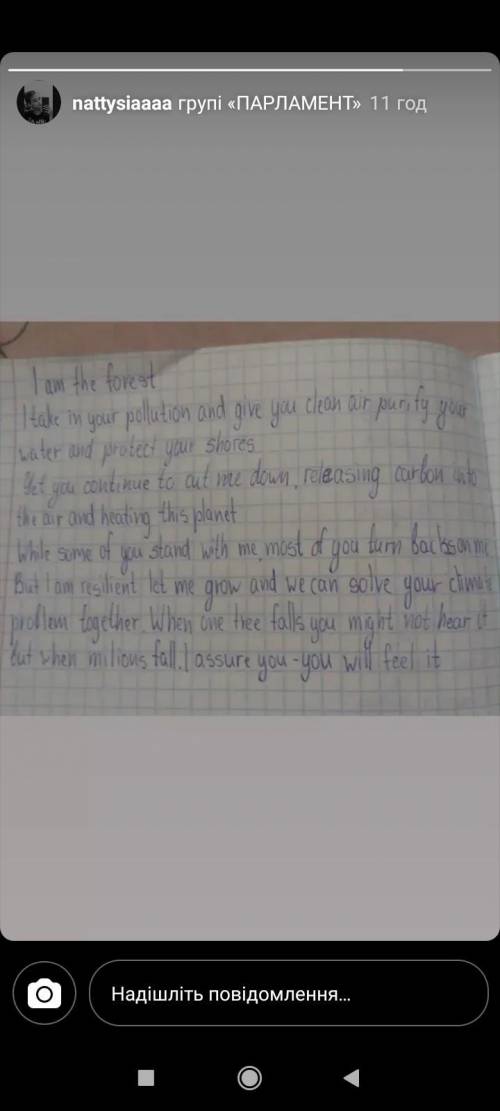 nattysiaaaa групі «ПАРЛАМЕНТ» 11 год
I am the forest
I take in your pollution and give you clean air purify your
water and protect your shores
Yet you continue to cut me down, releasing carbon into
the air and heating this planet
While some of you stand with me, most of you turn backs on me
But I am resilient let me grow and we can solve your climate
problem together. When one tree falls you might not hear it
but when milions fall. I assure you - you will feel it
Надішліть повідомлення...